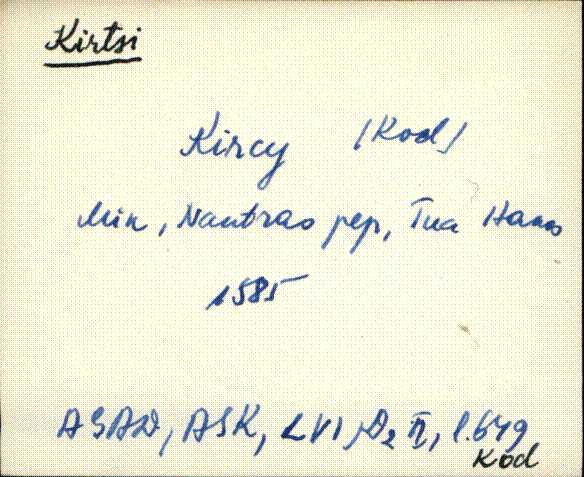 Kirtsi
Kircy (Kod)
Min, Nautrao pep, Tua Hans
1585
AGAD, ASK, LVI, D₂ II, l. 649
Kod